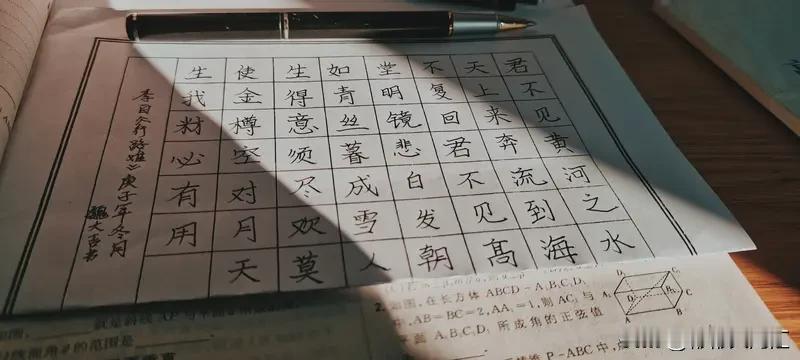 君不见黄河之水
天上来奔流到海
不复回君不见高
堂明镜悲白发朝
如青丝暮成雪人
生得意须尽欢莫
使金樽空对月天
生我材必有用
李白《行路难》庚子年冬月
魏大吉书
2. 如图,在长方体 ABCD-A₁B₁C₁D₁
中,AB=BC=2,AA₁=1,则 AC₁ 与
平面 A₁B₁C₁D₁ 所成角的正弦值
P-ABC 中
线面角θ的范围是
D₁
C₁
A₁
B₁
D
C
A
B